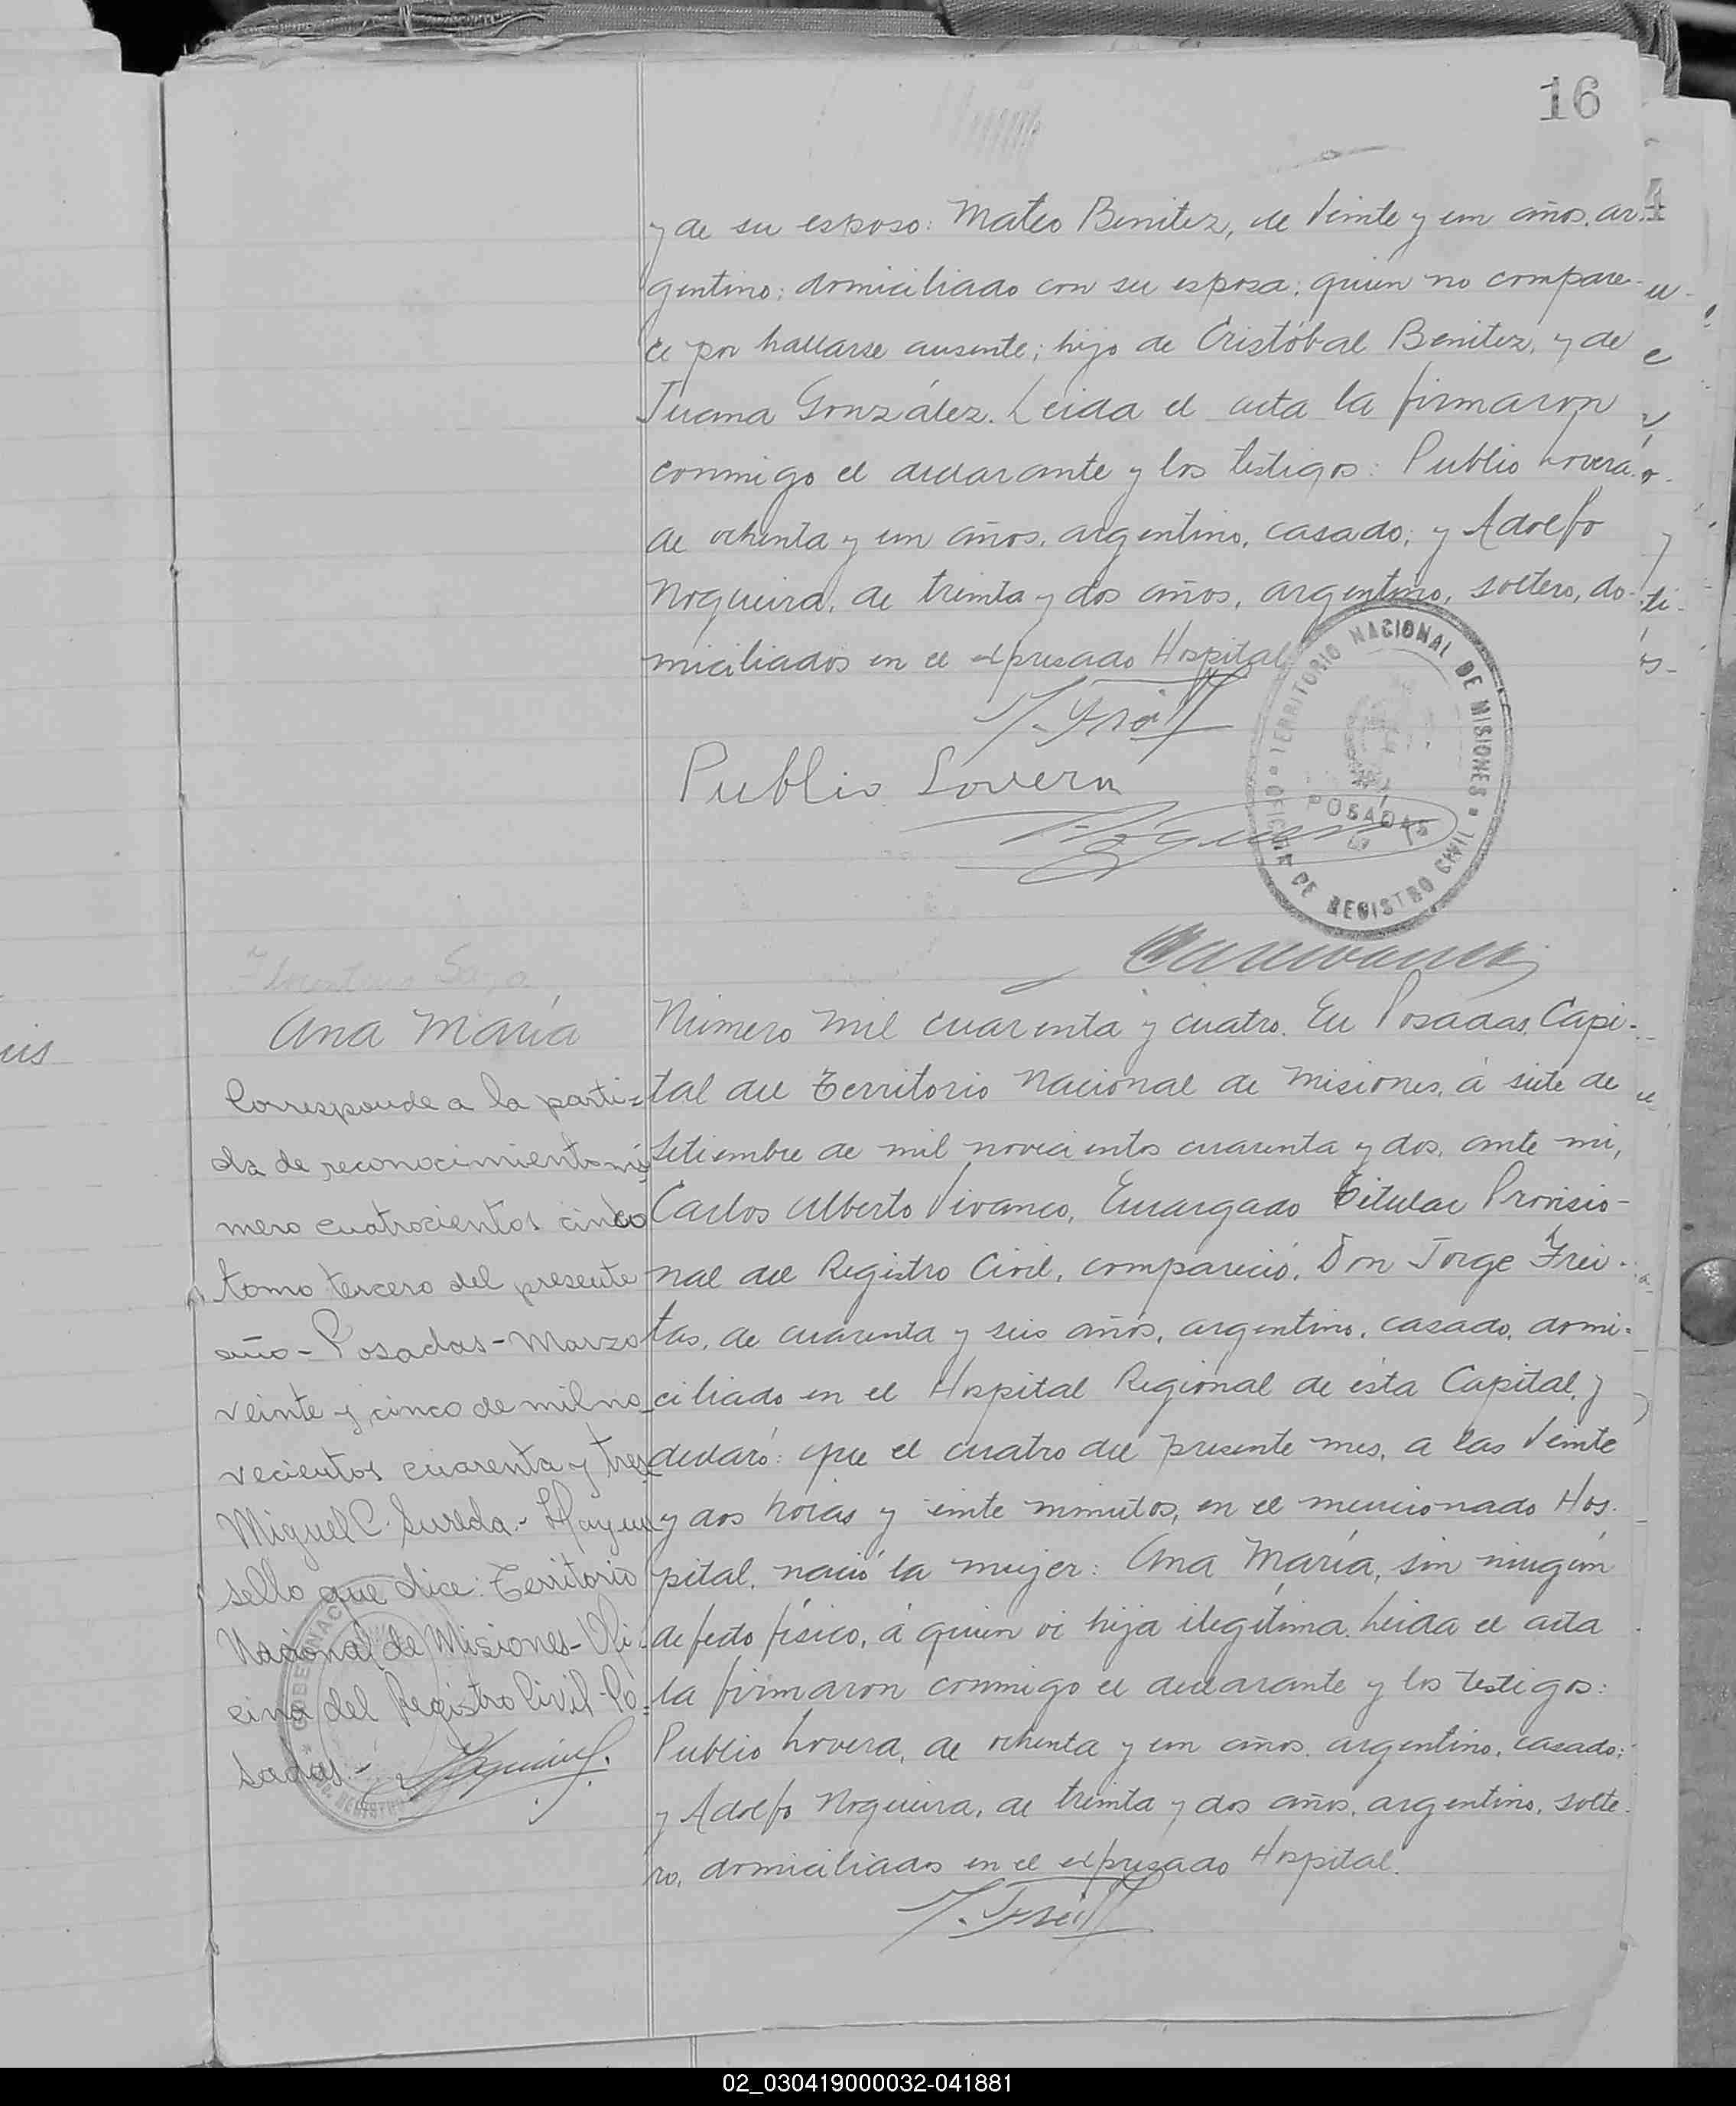 16
y de su esposo: Mateo Benitez, de veinte y un años, ar-
gentino; domiciliado con su esposa; quien no compare-
ce por hallarse ausente; hijo de Cristóbal Benitez, y de
Juana González. Leida el acta la firmaron
conmigo el declarante y los testigos: Publio Lovera.
de ochenta y un años, argentino, casado; y Adolfo
Nogueira, de treinta y dos años, argentino, soltero, do-
miciliados en el expresado Hospital
TERRITORIO NACIONAL DE MISIONES
POSADAS
OFICINA DE REGISTRO CIVIL
Publio Lovera
Ana María
Corresponde a la parti-
da de reconocimiento nú
mero cuatrocientos cinco
tomo tercero del presente
año - Posadas - Marzo
veinte y cinco de mil no-
vecientos cuarenta y tres
Miguel C. Sureda - Hay un
sello que dice: Territorio
Nacional de Misiones - Ofi-
cina del Registro Civil - Po-
sadas -
Número mil cuarenta y cuatro. En Posadas, Capi-
tal del Territorio Nacional de Misiones, á siete de
Setiembre de mil novecientos cuarenta y dos, ante mi,
Carlos Alberto Vivanco, Encargado Titular Provisio-
nal del Registro Civil, compareció, Don Jorge Frei-
tas, de cuarenta y seis años, argentino, casado, domi-
ciliado en el Hospital Regional de ésta Capital, y
declaró: que el cuatro del presente mes, a las veinte
y dos horas y veinte minutos, en el mencionado Hos-
pital, nació la mujer: Ana María, sin ningún
defecto físico, á quien vi hija ilegítima. Leida el acta
la firmaron conmigo el declarante y los testigos:
Publio Lovera, de ochenta y un años, argentino, casado;
y Adolfo Nogueira, de treinta y dos años, argentino, solte-
ro, domiciliados en el expresado Hospital.
02_030419000032-041881